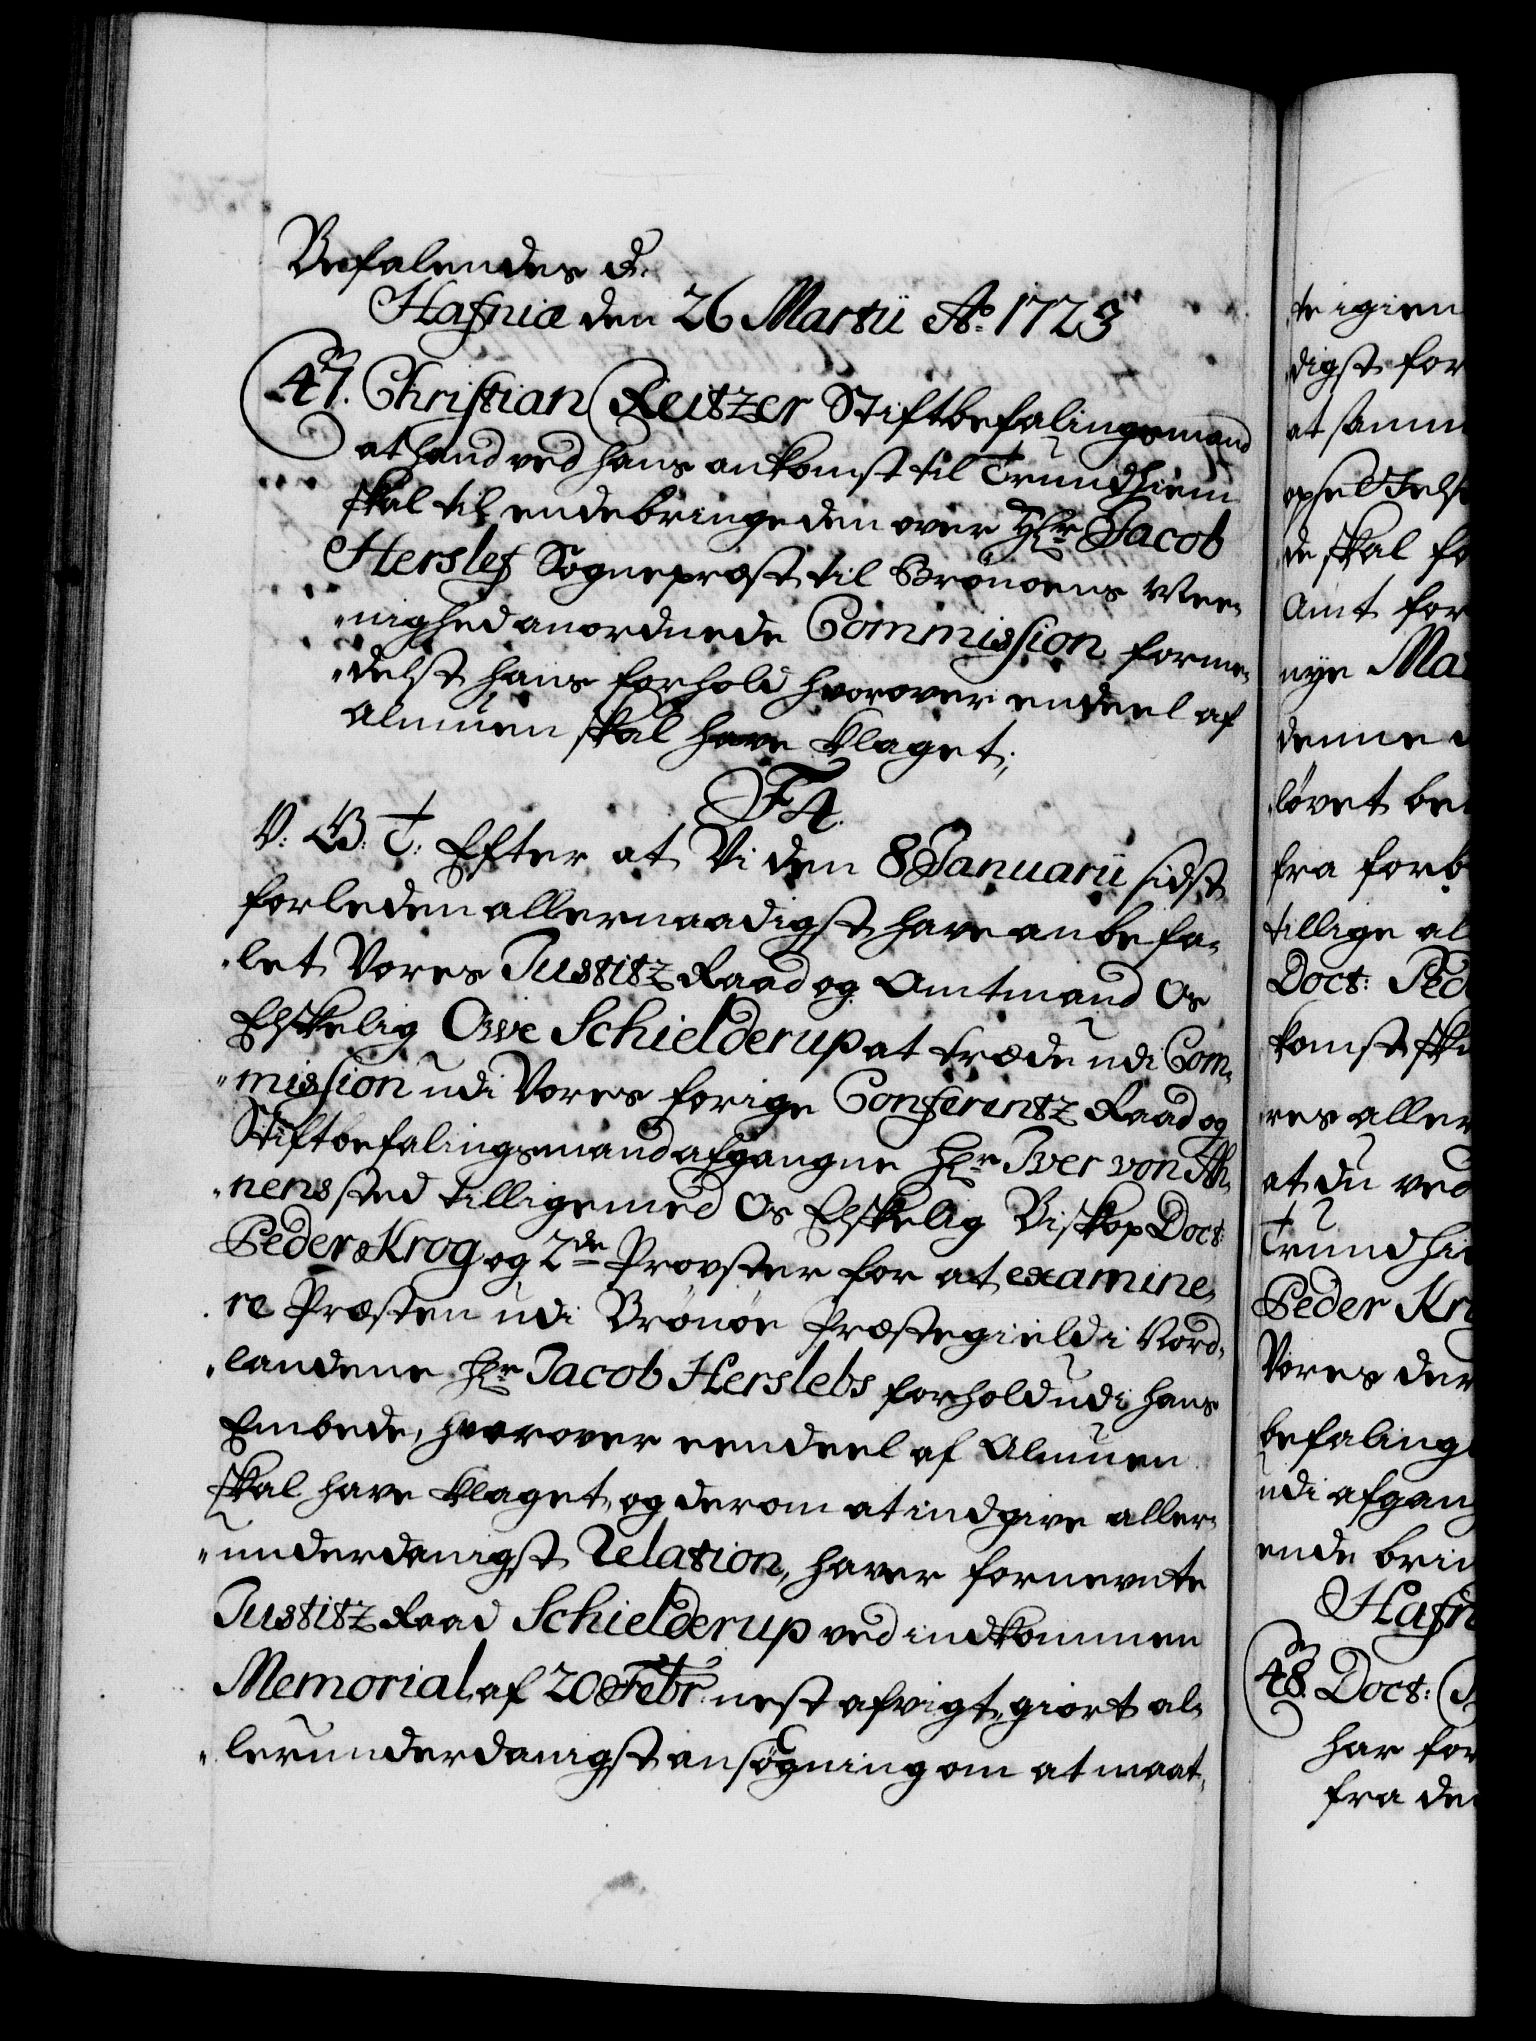 Befalendes &.
Hafniæ den 26 Martii Ao. 1723
47. Christian Reitzer Stiftbefalingsmand
at hand ved hans ankomst til Trundhiem
skal til endebringe den over Hr Jacob
Herslef Sognepræst til Brönöens Mee-
nighed anordnede Commission forme-
delst hans forhold hvorover endeel af
Almuen skal have klaget;
F4.
V: G: T: Efter at Vi den 8 Januarii sidst
forleden allernaadigst have anbefa-
let Vores Justitz Raad og Amtmand Os
Elskelig Ove Schielderup at træde udi Com-
mission udi Vores forige Conferentz Raad og
Stiftbefalingsmand afgangne Hr Iver von Ah-
nens sted tilligemed Os Elskelig Biskop Doct:
Peder Krog og 2de Provster for at examine-
re Præsten udi Brönöe Præstegield i Nord-
landene Hr Jacob Herslebs forhold udi hans
Embede, hvorover eendeel af Almuen
skal have klaget, og derom at indgive aller-
underdanigst Relation, haver fornevnte
Justitz Raad Schielderup ved indkommen
Memorial af 20 Febr: nest afvigt, giort al-
lerunderdanigst ansögning om at maat-
te igien
digst for
at samm
de skal fo
Amt for
nye Ma
denne
lövet be
fra forb
tillige al
Doct: Ped
komst
res aller
at du ved
Trundhi
Peder Kr
Vores der
befaling
udi afgan
ende brin
Hafn
48. Doct:
har for
fra de